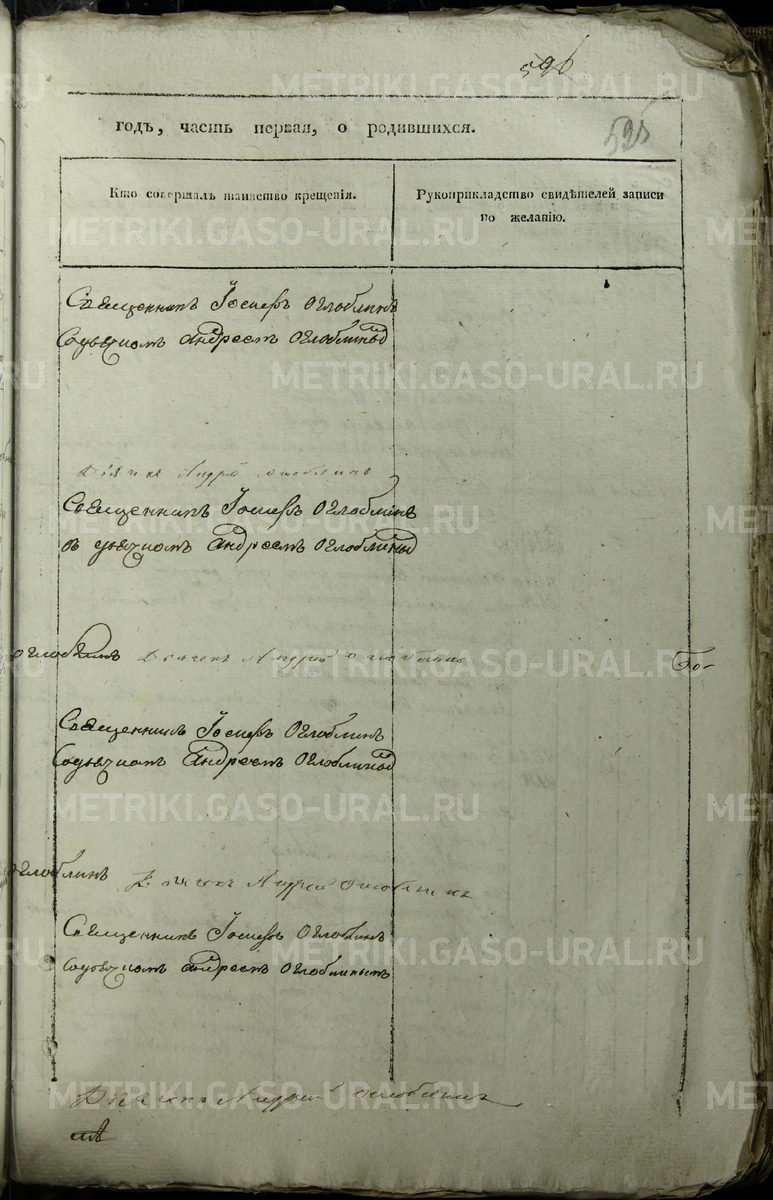 596
METRIKI.GASO-URAL.RU
годъ, часть первая, о родившихся.
525
Кто совершалъ таинство крещенія.
Рукоприкладство свидѣтелей записи по желанію.
Священникъ Іосифъ Оглоблинъ
Содьячкомъ Андреемъ Оглоблиным
Дьячекъ Андрей Оглоблинъ
Священникъ Іосифъ Оглоблинъ
съ дьячкомъ Андреемъ Оглоблиным
Оглоблинъ Дьячекъ Андрей Оглоблинъ
Священникъ Іосифъ Оглоблинъ
Содьячкомъ Андреемъ Оглоблиным
Оглоблинъ Дьячекъ Андрей Оглоблинъ
Священникъ Іосифъ Оглоблинъ
Содьячкомъ Андреемъ Оглоблинымъ
Дьячекъ Андрей Оглоблинъ